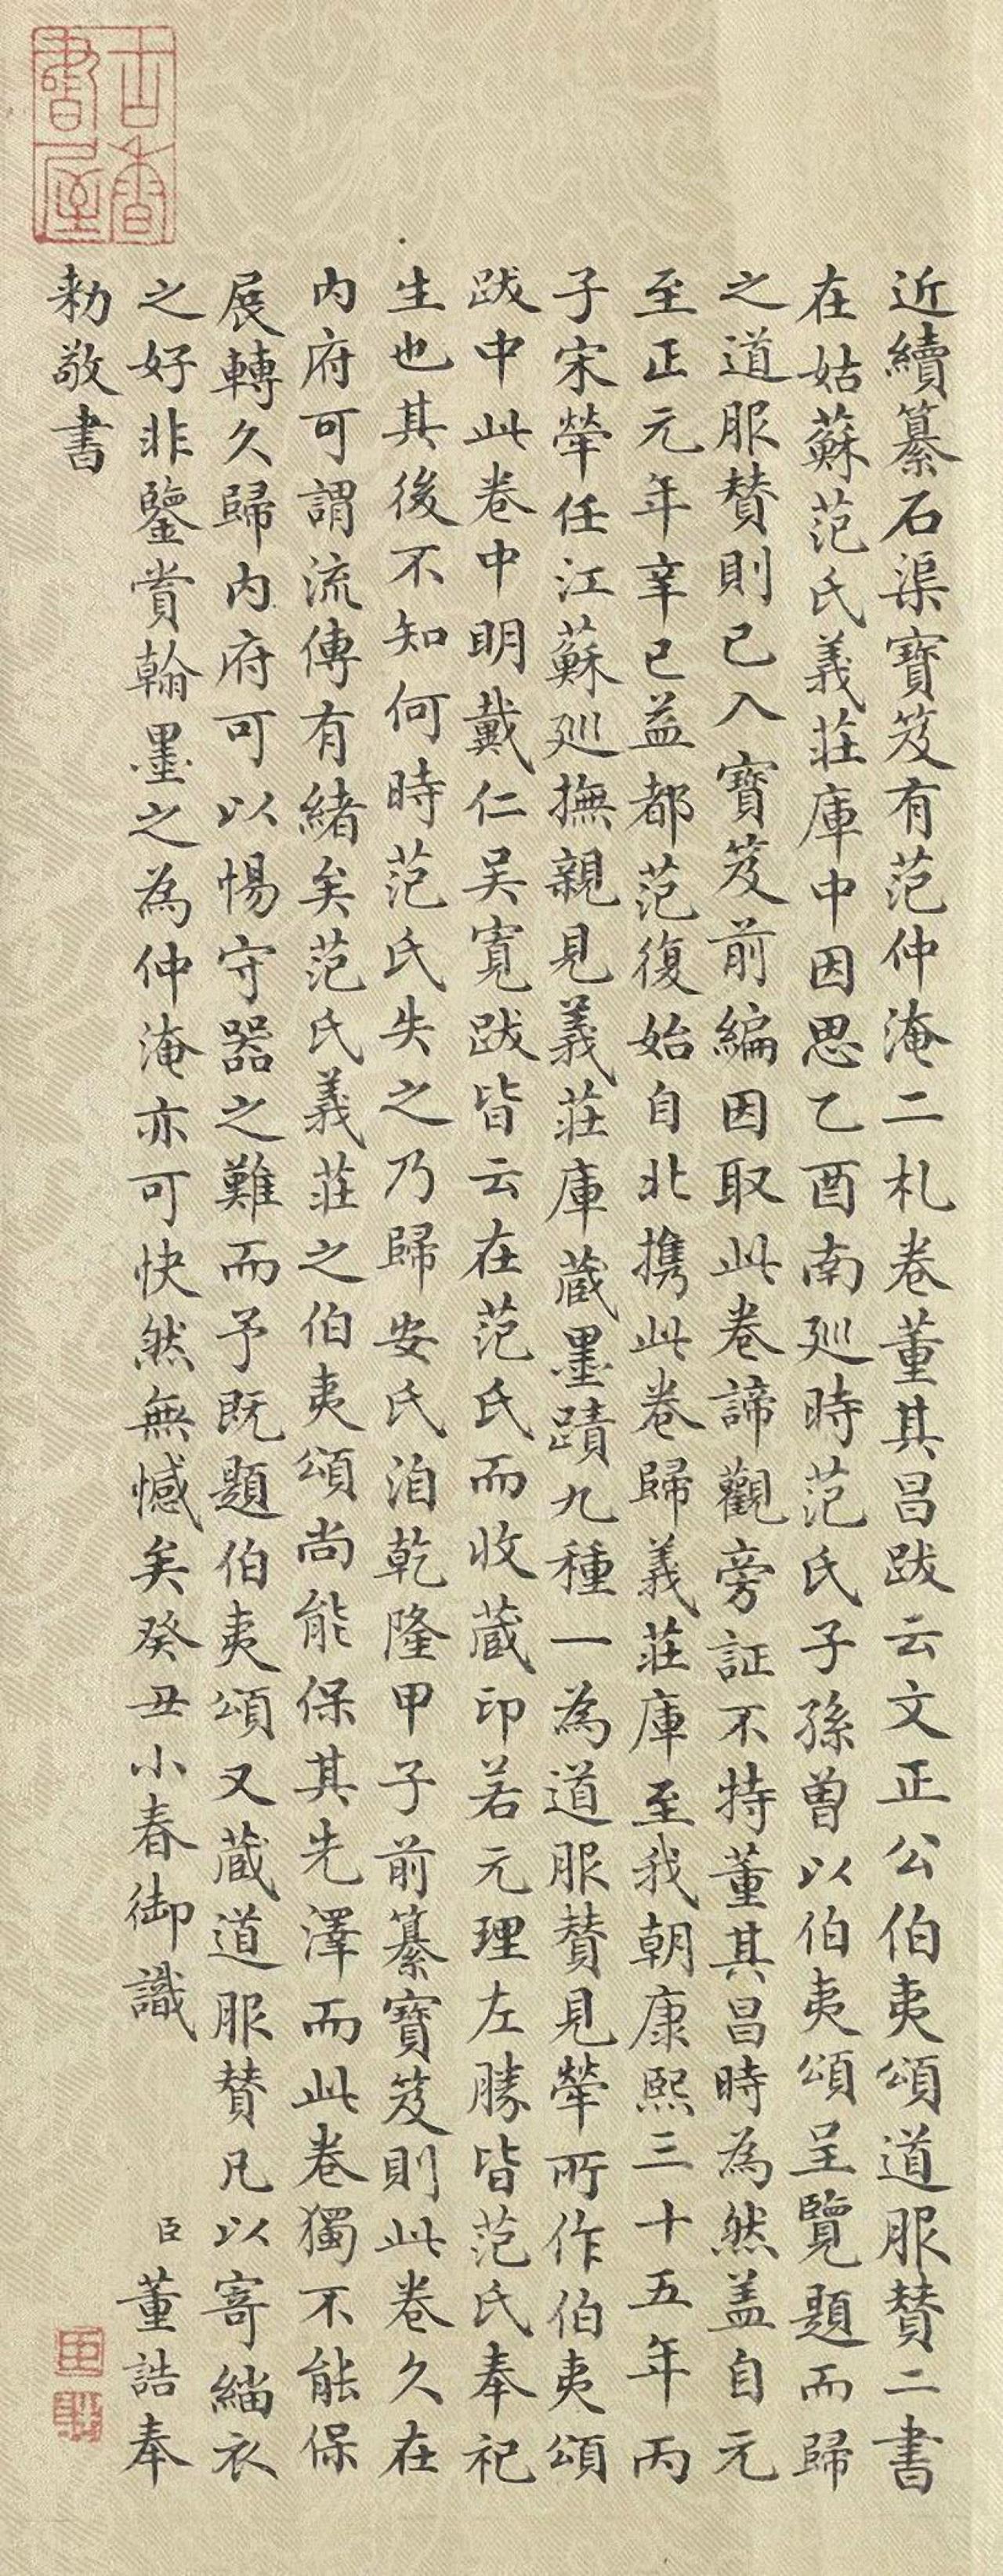 近續纂石渠寶笈有范仲淹二札卷董其昌跋云文正公伯夷頌道服贊二書
在姑蘇范氏義莊庫中因思乙酉南巡時范氏子孫曾以伯夷頌呈覽題而歸
之道服贊則已入寶笈前編因取此卷諦觀旁証不特董其昌時為然盖自元
至正元年辛巳益都范復始自北携此卷歸義莊庫至我朝康熙三十五年丙
子宋犖任江蘇巡撫親見義莊庫蔵墨蹟九種一為道服贊見犖所作伯夷頌
跋中此卷中明戴仁吴寬跋皆云在范氏而收蔵印若元理左勝皆范氏奉祀
生也其後不知何時范氏失之乃歸安氏洎乾隆甲子前纂寶笈則此卷久在
内府可謂流傳有緒矣范氏義莊之伯夷頌尚能保其先澤而此卷獨不能保
展轉久歸内府可以惕守器之難而予既題伯夷頌又蔵道服贊凡以寄緇衣
之好非鑒賞翰墨之為仲淹亦可快然無憾矣癸丑小春御識 臣董誥奉
勑敬書
古香書屋